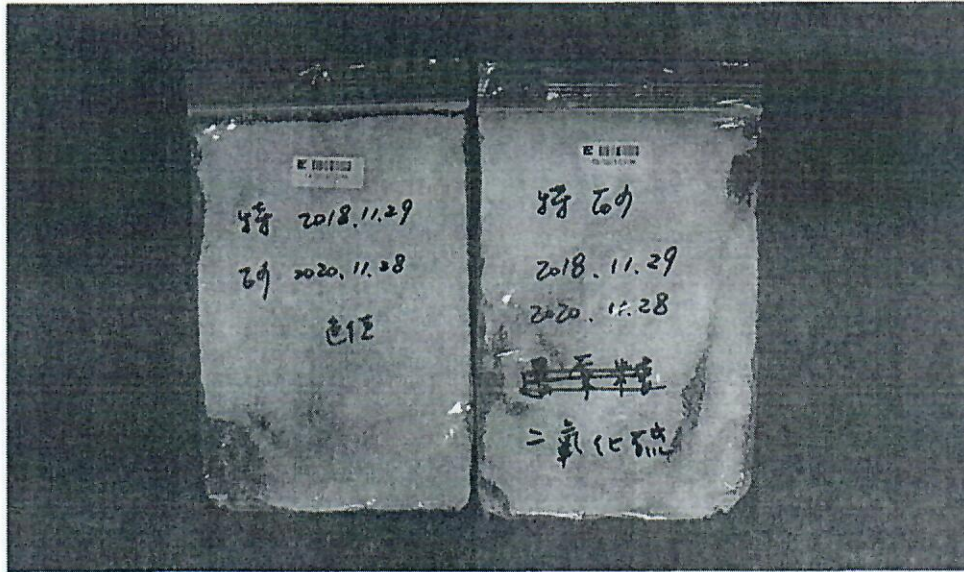 特 2018.11.29
砂 2020.11.28
色值
特 砂
2018.11.29
2020.11.28
还原糖
二氧化硫